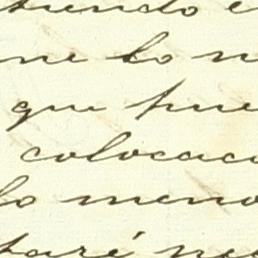 tiendo e
ne lo n
que pue
colocac
lo meno
taré ne